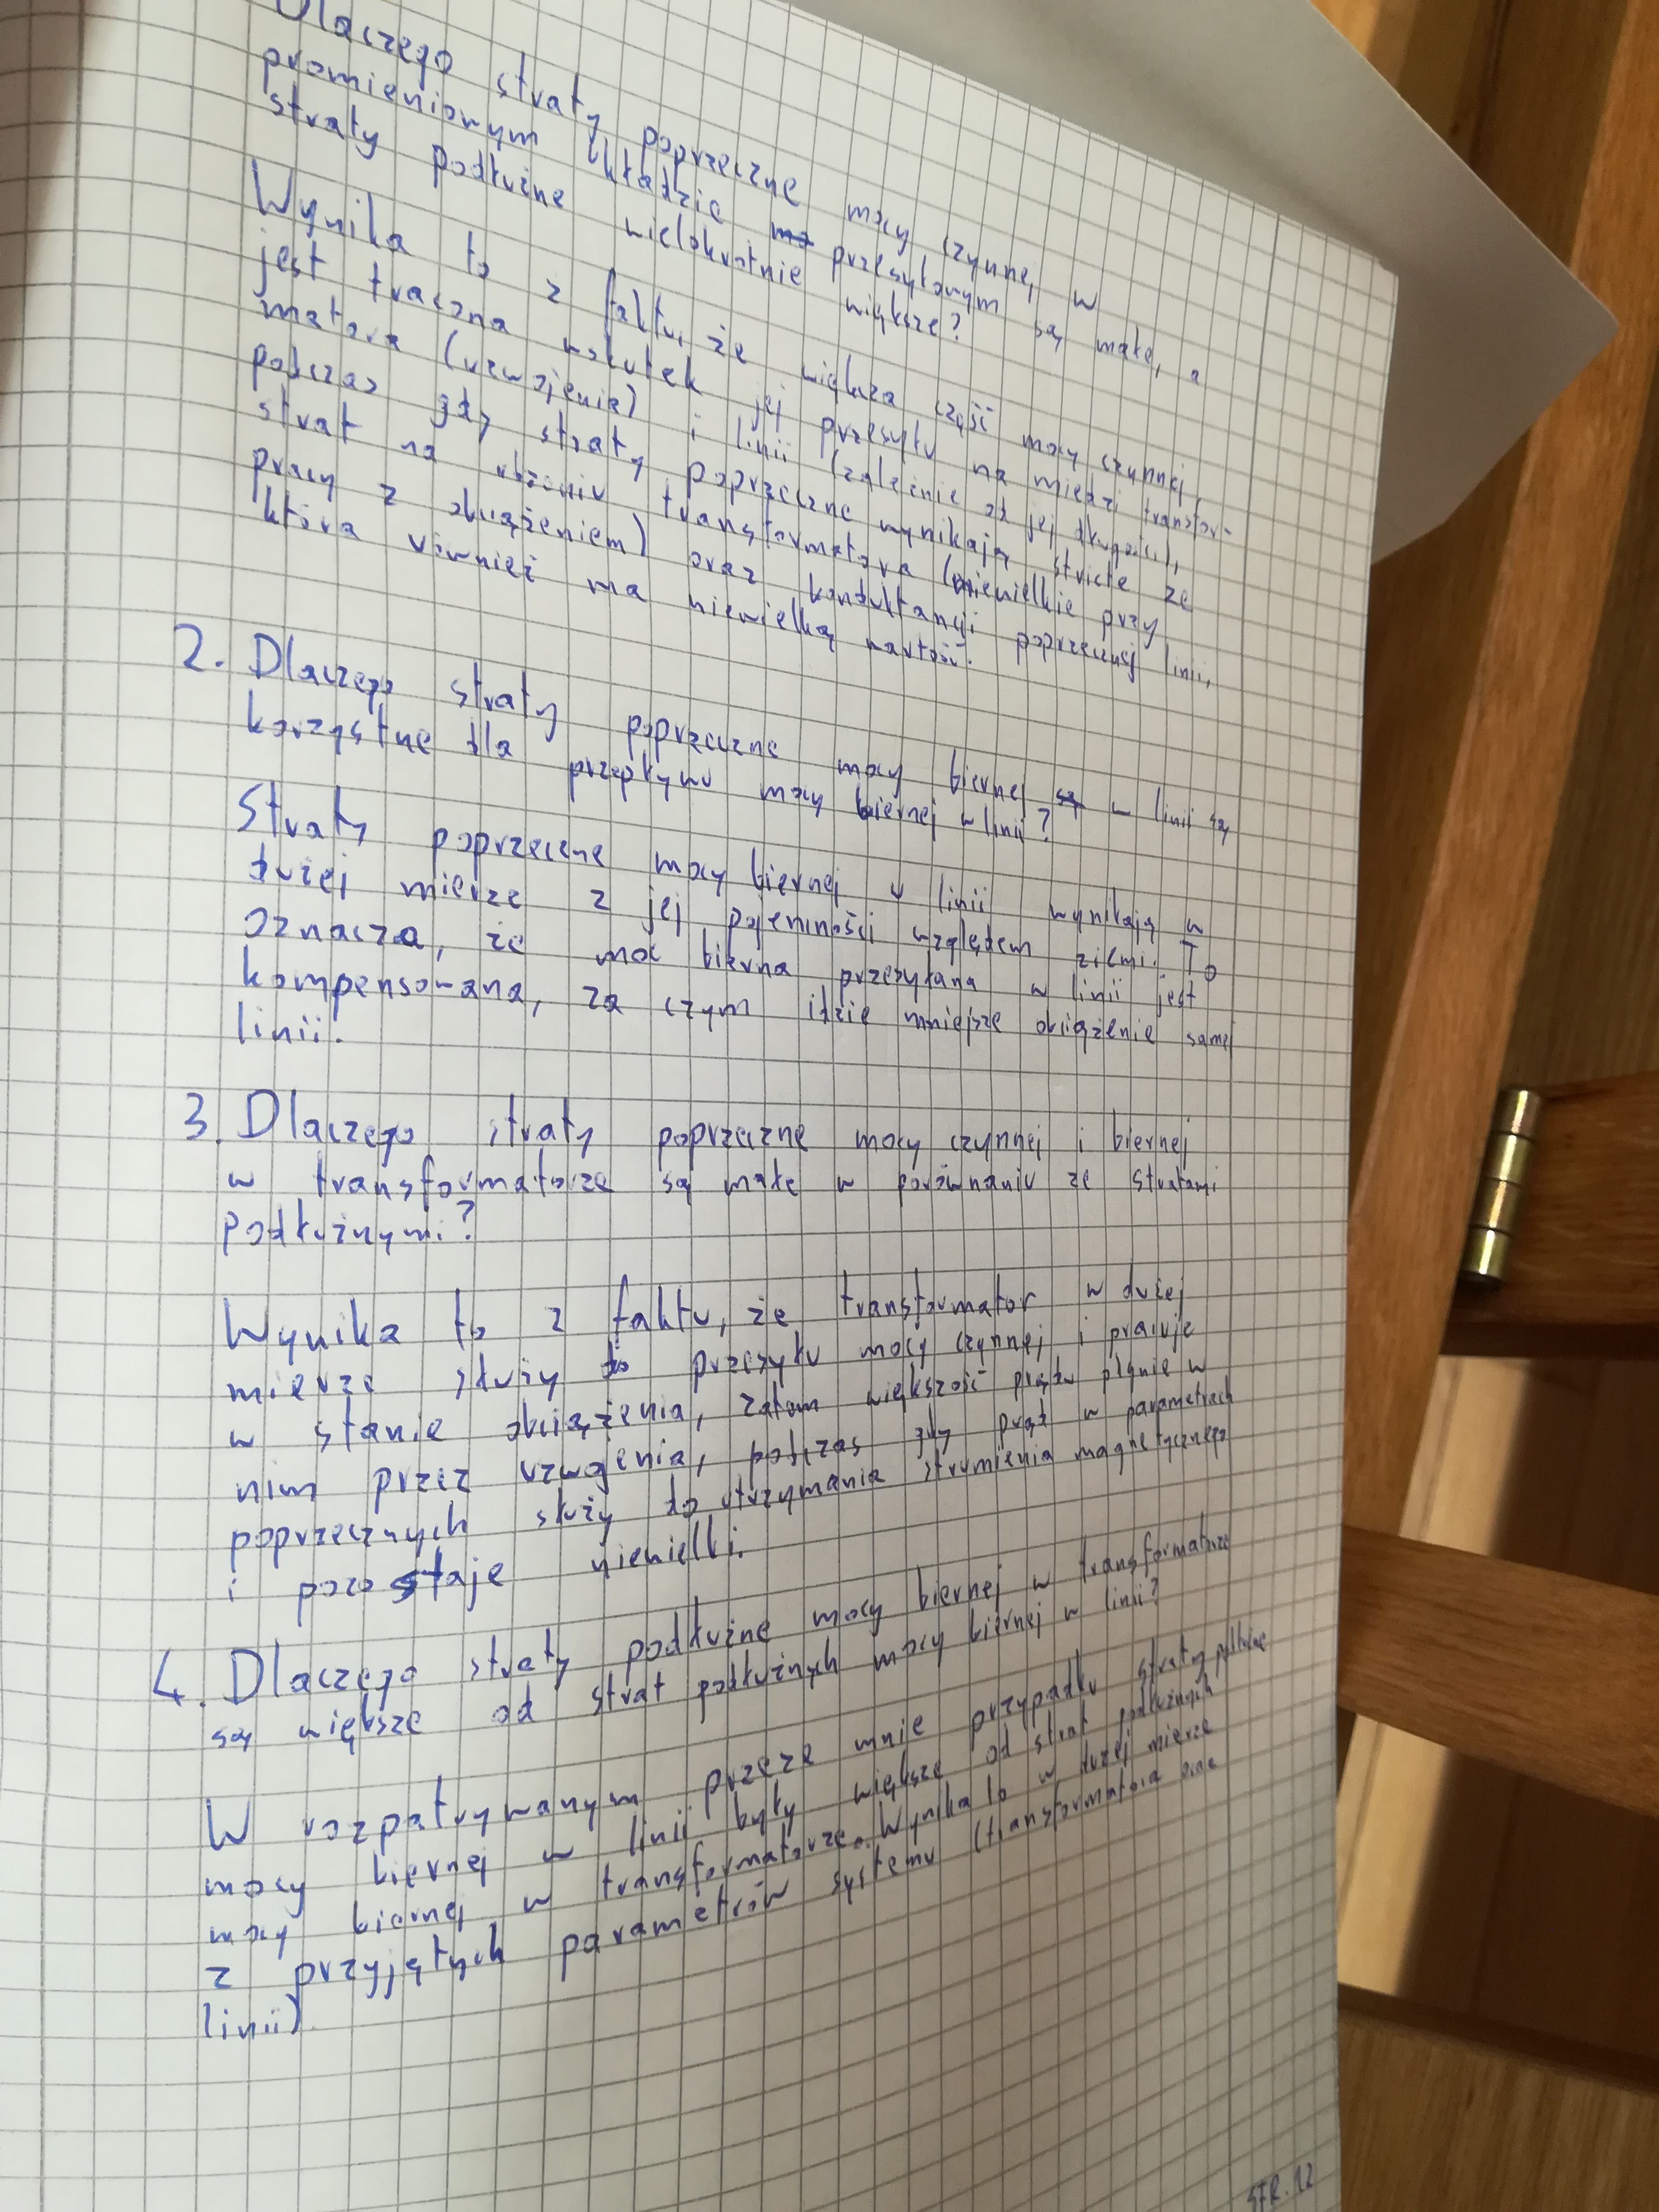 Dlaczego straty poprzeczne mocy czynnej w
promieniowym układzie przesyłowym są małe, a
straty podłużne wielokrotnie większe?
Wynika to z faktu, że większa część mocy czynnej
jest tracona wskutek jej przesyłu na miedzi transfor-
matora (uzwojenia) i linii (zależnie od jej długości),
podczas gdy straty poprzeczne wynikają stricte ze
strat na rdzeniu transformatora (niewielkie przy
pracy z obciążeniem) oraz konduktancji poprzecznej linii,
która również ma niewielką wartość.
2. Dlaczego straty poprzeczne mocy biernej w linii są
korzystne dla przepływu mocy biernej w linii?
Straty poprzeczne mocy biernej w linii wynikają w
dużej mierze z jej pojemności względem ziemi. To
oznacza, że moc bierna przesyłana w linii jest
kompensowana, za czym idzie mniejsze obciążenie samej
linii.
3. Dlaczego straty poprzeczne mocy czynnej i biernej
w transformatorze są małe w porównaniu ze stratami
podłużnymi?
Wynika to z faktu, że transformator w dużej
mierze służy do przesyłu mocy czynnej i pracuje
w stanie obciążenia, zatem większość prądu płynie w
nim przez uzwojenia, podczas gdy prąd w parametrach
poprzecznych służy do utrzymania strumienia magnetycznego
i pozostaje niewielki.
4. Dlaczego straty podłużne mocy biernej w transformatorze
są większe od strat podłużnych mocy biernej w linii?
W rozpatrywanym przeze mnie przypadku straty podłużne
mocy biernej w linii były większe od strat podłużnych
mocy biernej w transformatorze. Wynika to w dużej mierze
z przyjętych parametrów systemu (transformatora oraz
linii)
STR. 12